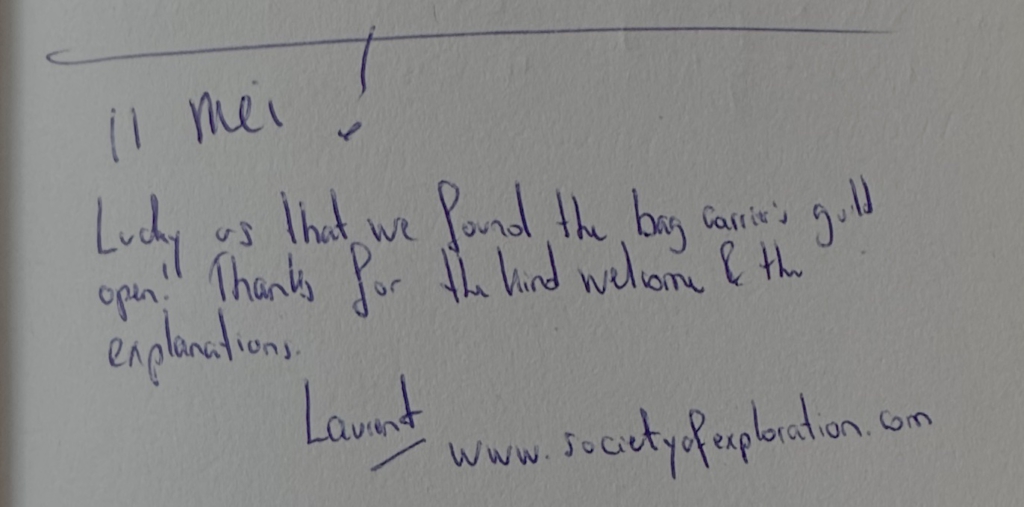 11 mei
Lucky us that we found the bag carrier's guild
open!! Thanks for the kind welcome & the
explanations.
Laurent
www.societyofexploration.com